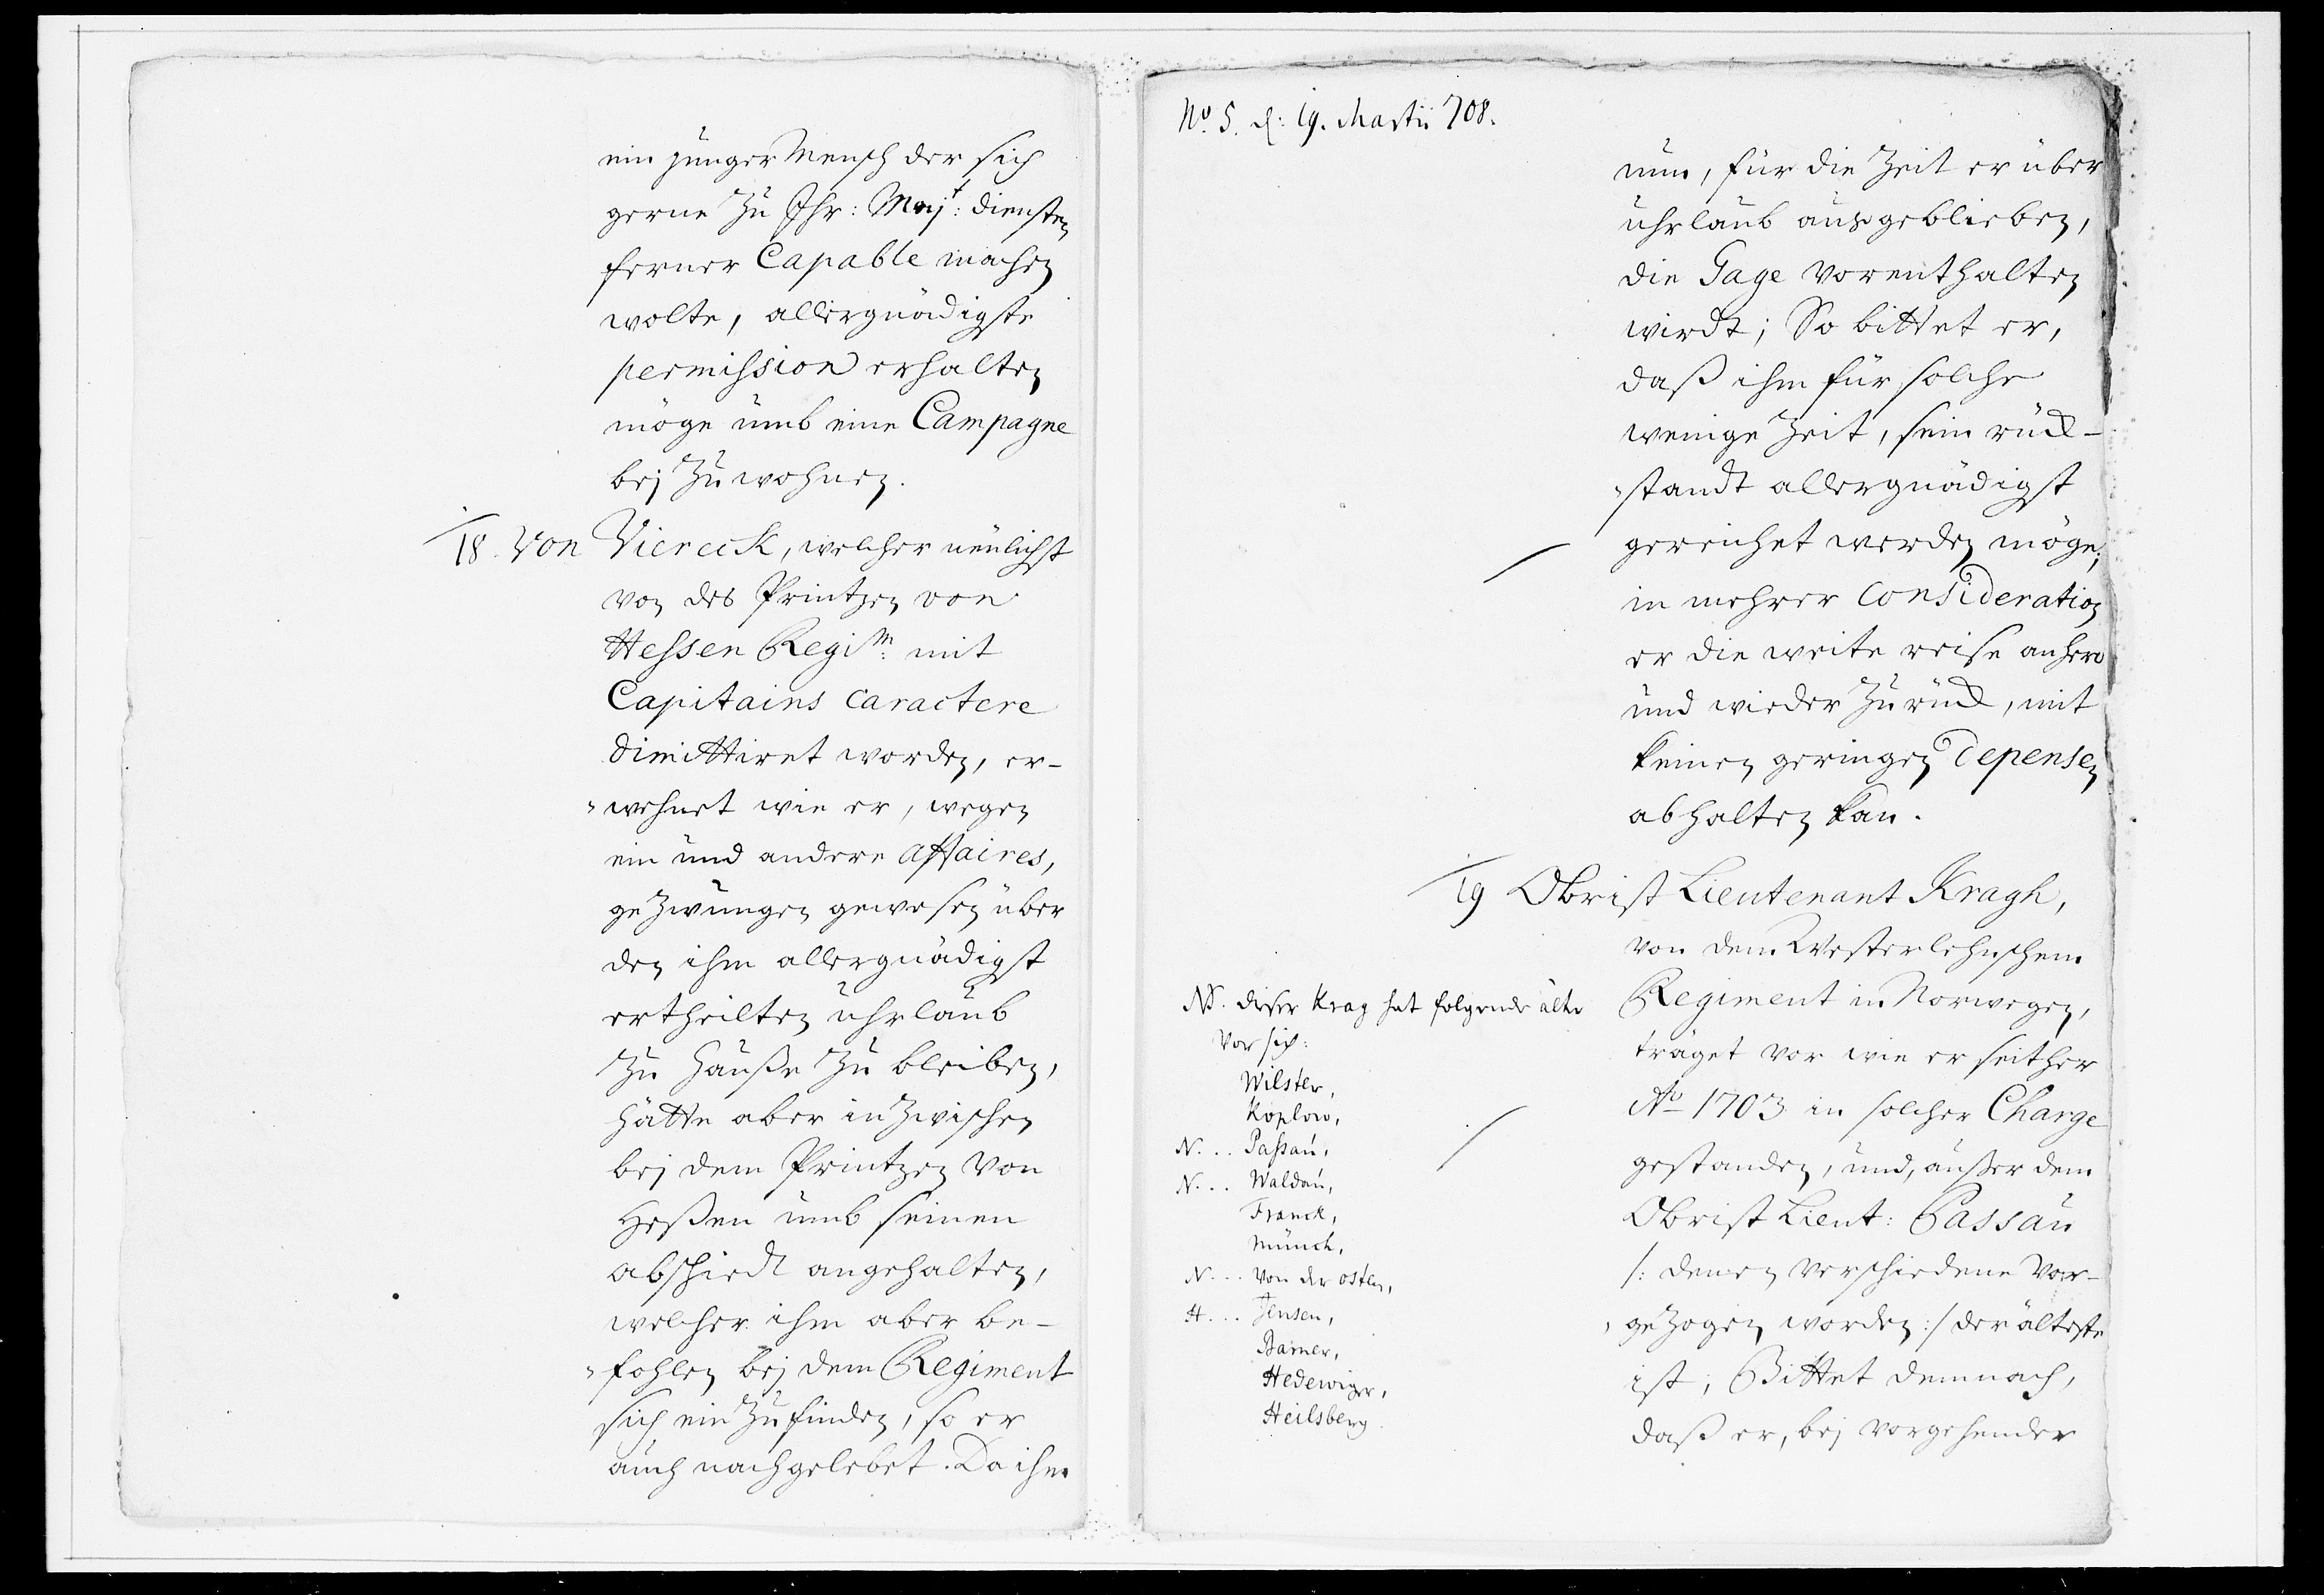 ein junger Mensch der sich
gerne zu Ihr: Maj:t diensten
ferner Capable machen
wolte, allergnädigste
permission erhalten
möge umb eine Campagne
bej zu wohnen.
18. Von Viereck, welcher neulichst
von des Printzen von
Hessen Regim: mit
Capitains caractere
dimittiret worden, er-
wehnet wie er, wegen
ein und andere affaires,
gezwungen gewesen über
den ihm allergnädigst
ertheilten uhrlaub
zu Hauße zu bleiben,
hätte aber inzwischen
bej dem Printzen von
Heßen umb seinen
abschiedt angehalten,
welcher ihm aber be-
fohlen bej dem Regiment
sich ein zu finden, so er
auch nachgelebet. Da ihm
No. 5. d: 19. Martii 708.
nun, für die Zeit er über
uhrlaub ausgeblieben,
die Gage vorenthalten
wirdt; So bittet er,
daß ihm für solche
wenige Zeit, sein rück-
standt allergnädigst
gereichet werden möge;
in mehrer consideration
er die weite reise anhero
und wieder zurück, mit
keinen geringen depensen
abhalten kan.
19 Obrist Lieutenant Kragh,
von dem Westerlehnschem
Regiment in Norwegen,
träget vor wie er seither
Ao 1703 in solcher Charge
gestanden, und, außer dem
Obrist Lieut: Passau
/: denen verschiedene vor-
gezogen worden :/ der älteste
ist; Bittet demnach,
daß er, bej vorgehender
NB. dieser Krag hat folgende älte
vor sich:
Wilster,
Koplow,
N... Passau,
N... Waldau,
Franck,
Münch,
N... von der Osten,
H... Jensen,
Barner,
Hedewiger,
Heilsberg.